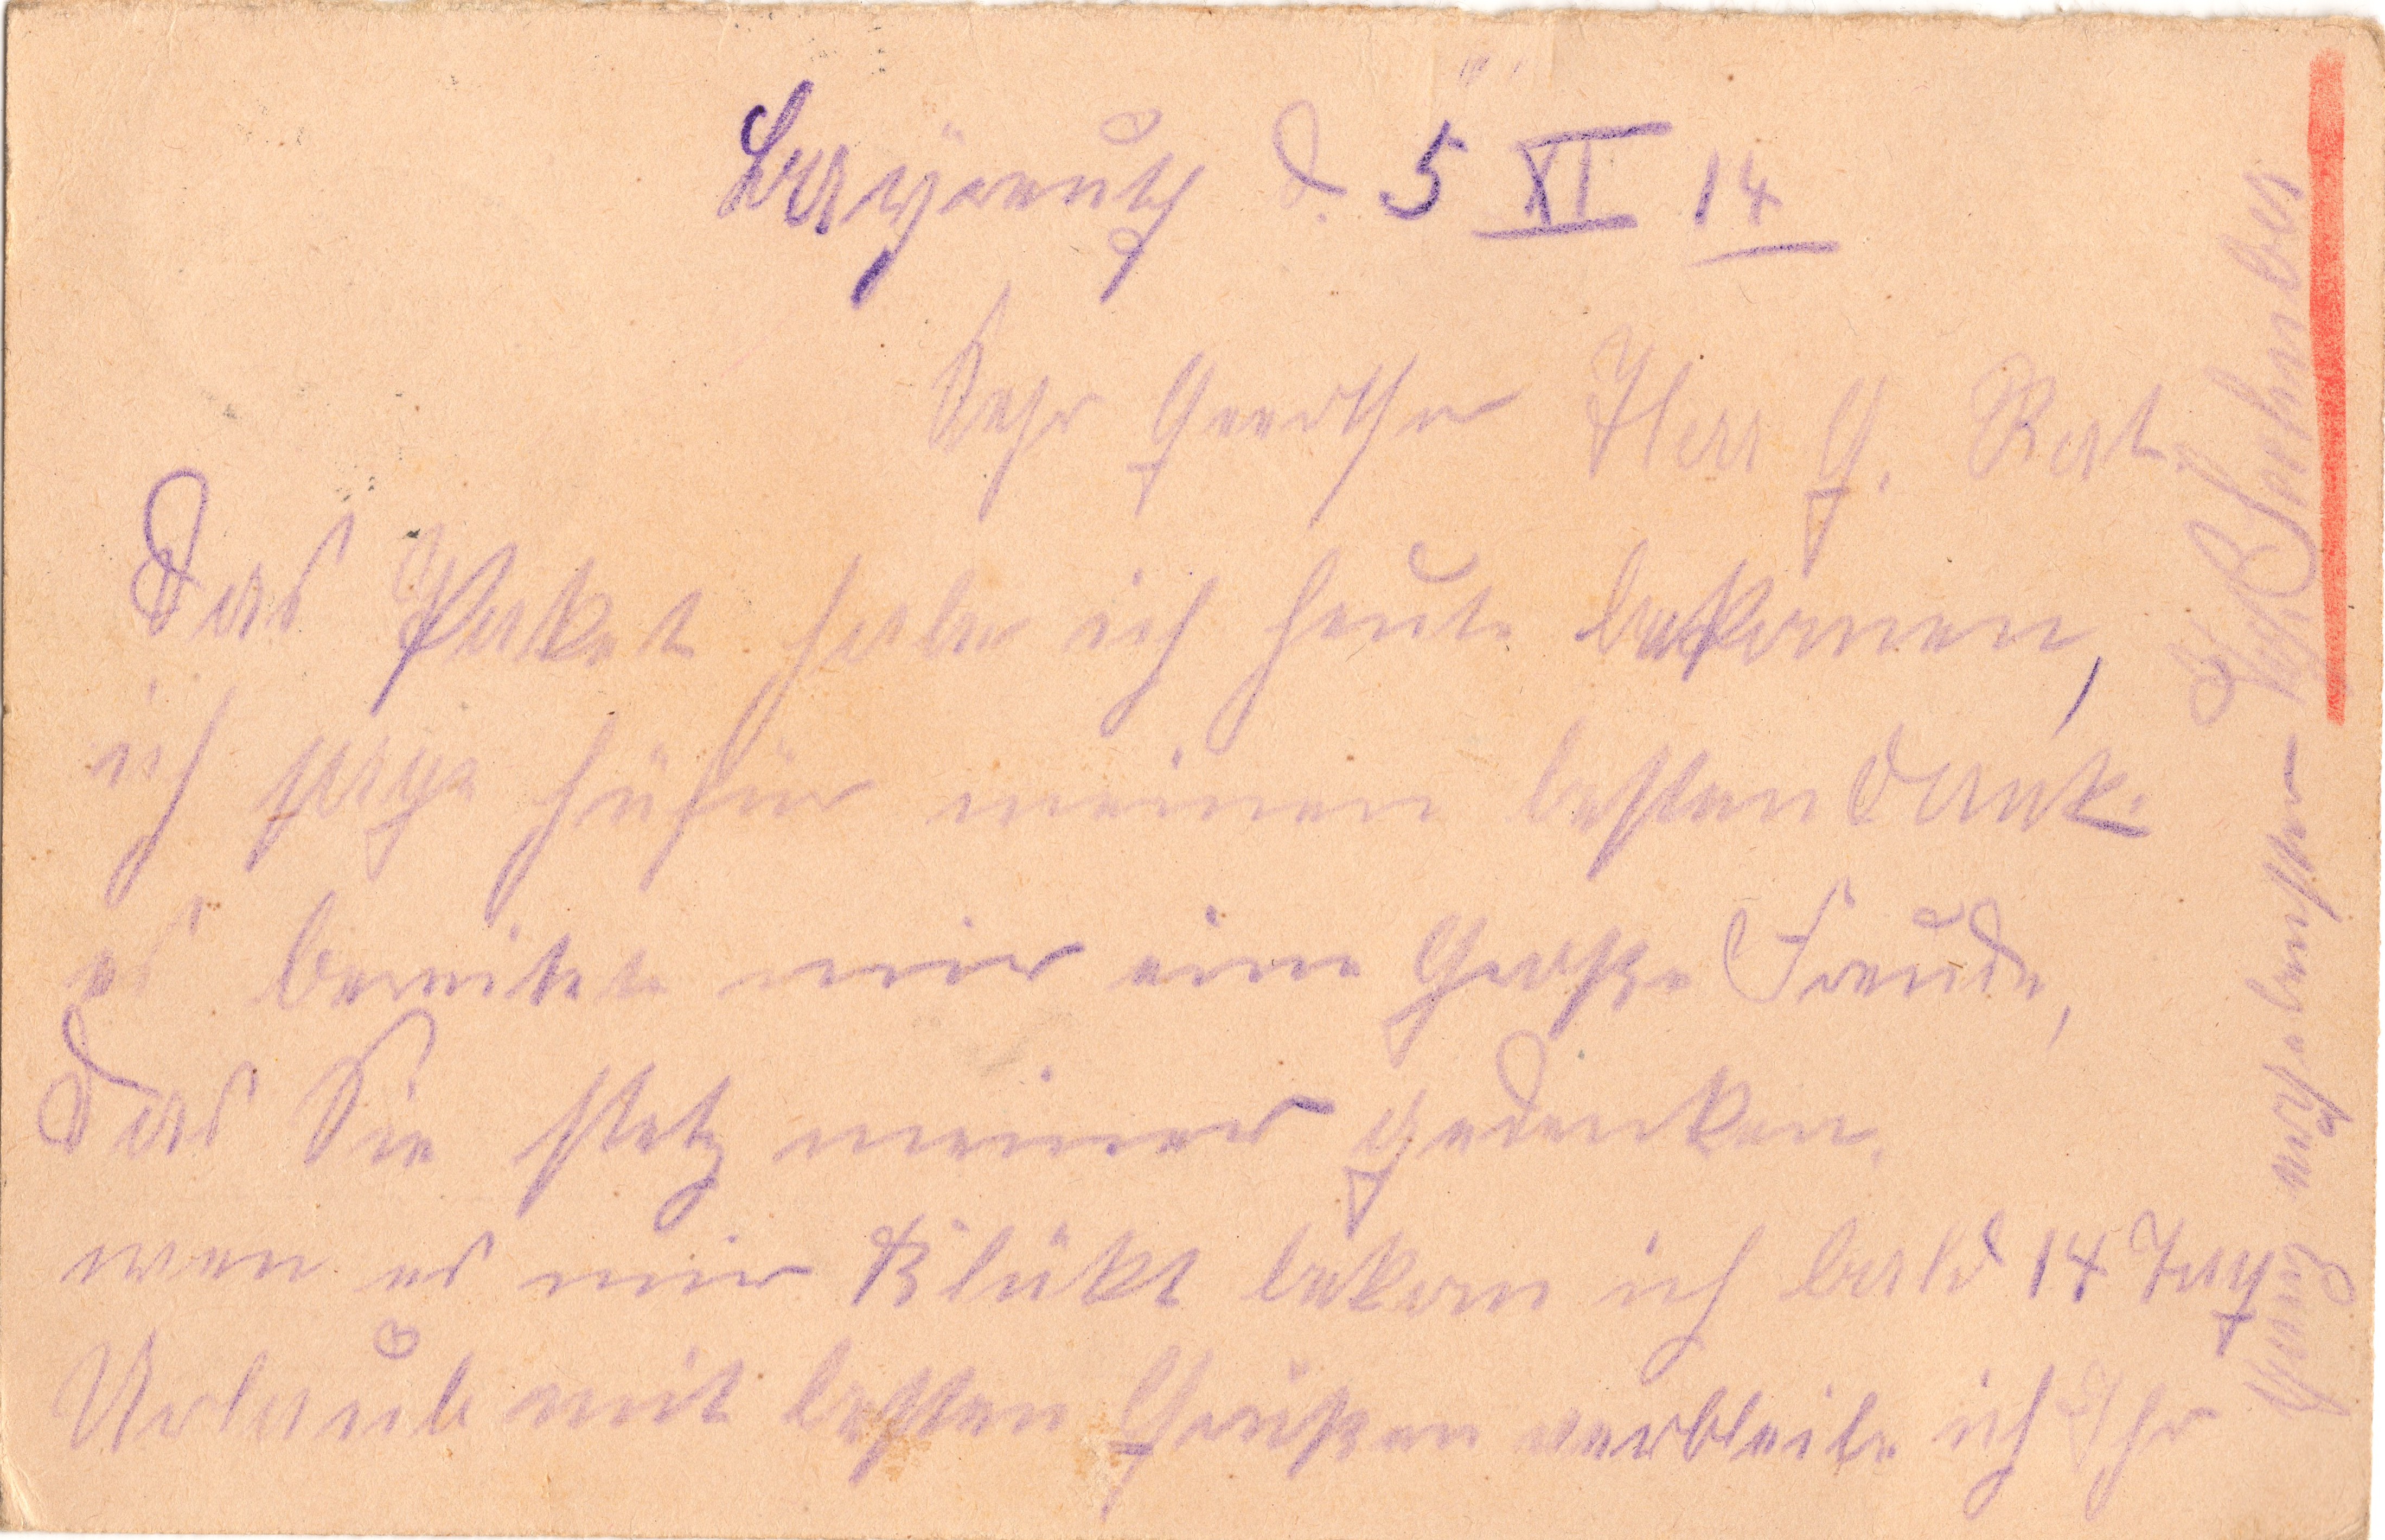 Bayreuth d. 5 XI 14
Sehr Geerther Herr G. Rat.
Das Paket habe ich heute bekomen,
ich sage hüfür meinen besten Dank.
es bereitet mir eine Große Freude,
das Sie stetz meiner gedenken.
wen es mir Klükt bekom ich bald 14 Tag
Urlaub mit besten Grüßen verbleibe ich Ihr
Ganz